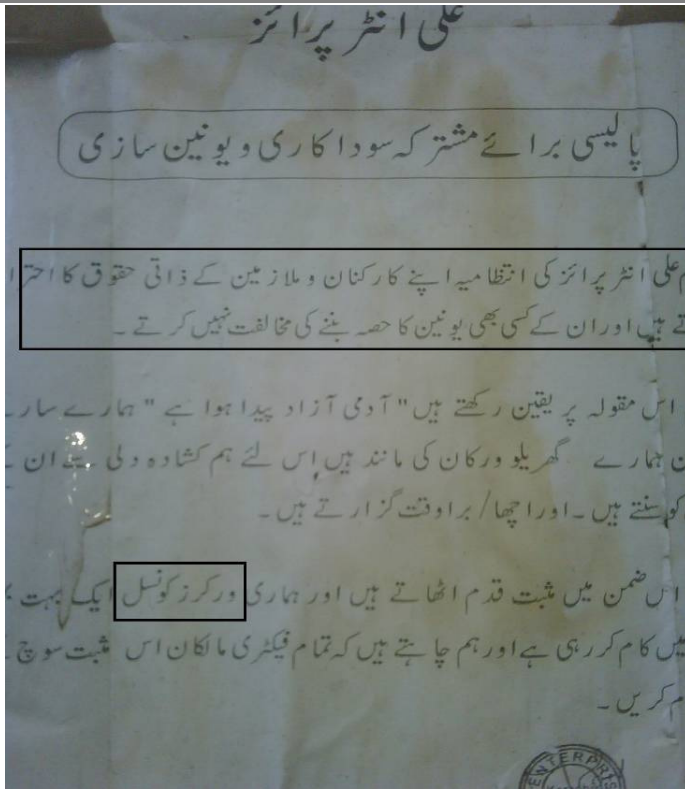 علی انٹر پرائز
پالیسی برائے مشترکہ سودا کاری و یونین سازی
علی انٹر پرائز کی انتظامیہ اپنے کارکنان و ملازمین کے ذاتی حقوق کا احترا
تے ہیں اور ان کے کسی بھی یونین کا حصہ بننے کی مخالفت نہیں کرتے ۔
اس مقولہ پر یقین رکھتے ہیں " آدمی آزاد پیدا ہوا ہے " ہمارے سارے
ہمارے گھریلو ورکان کی مانند ہیں اس لئے ہم کشادہ دلی سے ان
کو سنتے ہیں ۔ اور اچھا / برا وقت گزارتے ہیں ۔
اس ضمن میں مثبت قدم اٹھاتے ہیں اور ہماری ورکرز کونسل ایک بہت
میں کام کر رہی ہے اور ہم چاہتے ہیں کہ تمام فیکٹری مالکان اس مثبت سوچ
م کریں ۔
ENTERPRIS